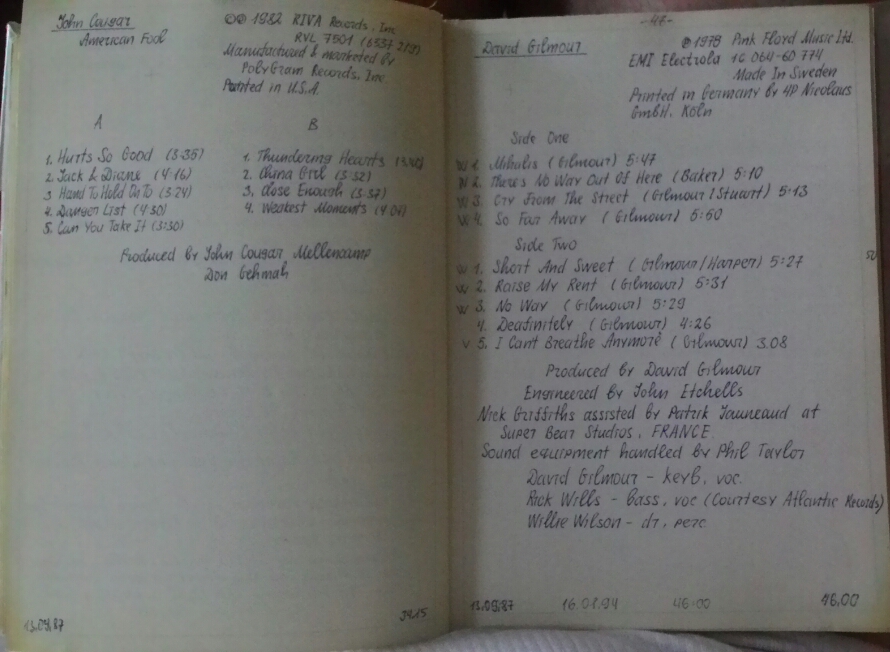 John Cougar
American Fool
©℗ 1982 RIVA Records, Inc.
RVL 7501 (6337 219)
Manufactured & marketed by
PolyGram Records, Inc
Printed in U.S.A.
A
1. Hurts So Good (3:35)
2. Jack & Diane (4:16)
3 Hand To Hold On To (3:24)
4. Danger List (4:30)
5. Can You Take It (3:30)
B
1. Thundering Hearts
2. China Girl (3:32)
3. Close Enough (3:37)
4. Weakest Moments (4:07)
Produced by John Cougar Mellencamp
Don Gehmah
13.09.87
34.15
-47-
David Gilmour
℗ 1978 Pink Floyd Music Ltd.
EMI Electrola 1C 064-60 774
Made In Sweden
Printed in Germany by 4P Nicolaus
GmbH, Köln
Side One
W 1. Mihalis (Gilmour) 5:47
W 2. There's No Way Out Of Here (Baker) 5:10
W 3. Cry From The Street (Gilmour/Stuart) 5:13
W 4. So Far Away (Gilmour) 5:50
Side Two
W 1. Short And Sweet (Gilmour/Harper) 5:27
W 2. Raise My Rent (Gilmour) 5:31
W 3. No Way (Gilmour) 5:29
4. Deafinitely (Gilmour) 4:26
V 5. I Can't Breathe Anymore (Gilmour) 3.08
Produced by David Gilmour
Engineered by John Etchells
Nick Griffiths assisted by Patrik Jauneaud at
Super Bear Studios, FRANCE.
Sound equipment handled by Phil Taylor
David Gilmour - keyb, voc.
Rick Wills - bass, voc (Courtesy Atlantic Records)
Willie Wilson - dr, perc
13.09.87 16.01.94 46-00 46.00